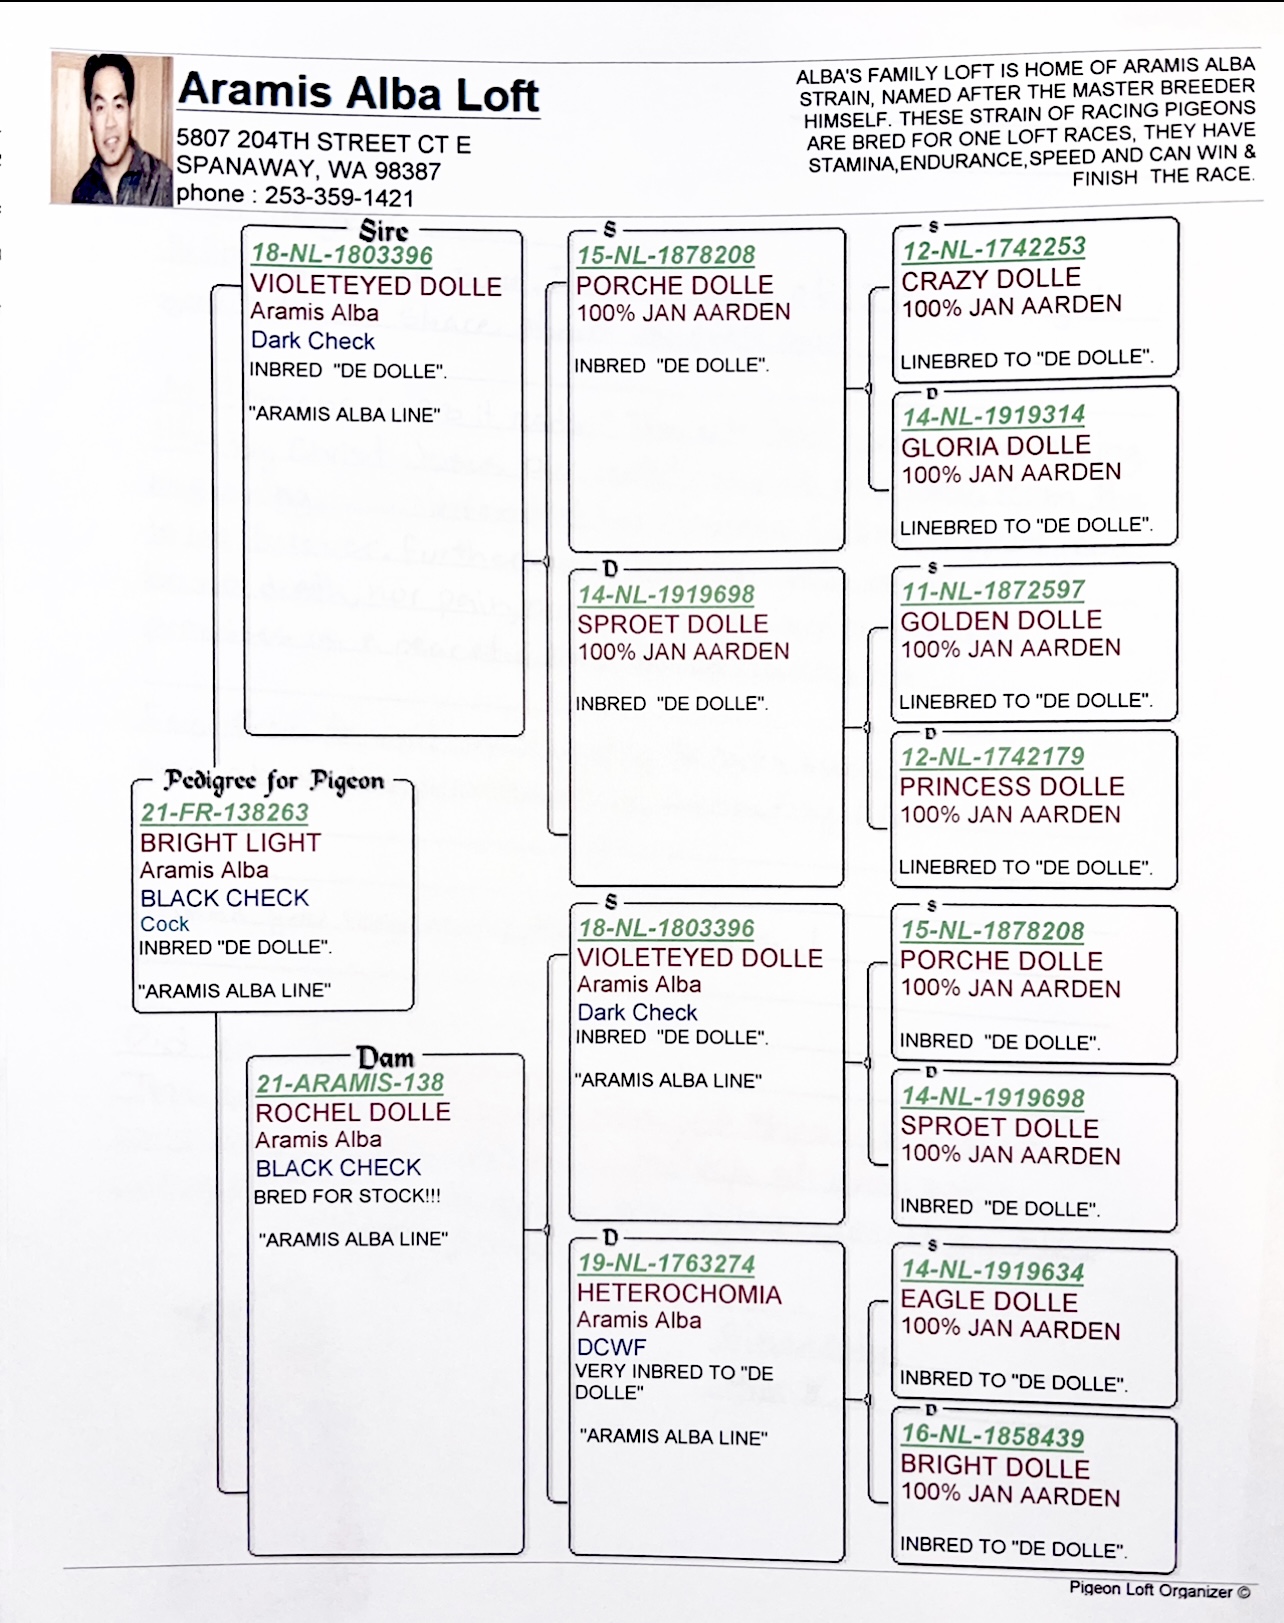 Aramis Alba Loft
5807 204TH STREET CT E
SPANAWAY, WA 98387
phone : 253-359-1421
ALBA'S FAMILY LOFT IS HOME OF ARAMIS ALBA
STRAIN, NAMED AFTER THE MASTER BREEDER
HIMSELF. THESE STRAIN OF RACING PIGEONS
ARE BRED FOR ONE LOFT RACES, THEY HAVE
STAMINA,ENDURANCE,SPEED AND CAN WIN &
FINISH THE RACE.
Pedigree for Pigeon
21-FR-138263
BRIGHT LIGHT
Aramis Alba
BLACK CHECK
Cock
INBRED "DE DOLLE".
"ARAMIS ALBA LINE"
Sire
18-NL-1803396
VIOLETEYED DOLLE
Aramis Alba
Dark Check
INBRED "DE DOLLE".
"ARAMIS ALBA LINE"
Dam
21-ARAMIS-138
ROCHEL DOLLE
Aramis Alba
BLACK CHECK
BRED FOR STOCK!!!
"ARAMIS ALBA LINE"
S
15-NL-1878208
PORCHE DOLLE
100% JAN AARDEN
INBRED "DE DOLLE".
D
14-NL-1919698
SPROET DOLLE
100% JAN AARDEN
INBRED "DE DOLLE".
S
18-NL-1803396
VIOLETEYED DOLLE
Aramis Alba
Dark Check
INBRED "DE DOLLE".
"ARAMIS ALBA LINE"
D
19-NL-1763274
HETEROCHOMIA
Aramis Alba
DCWF
VERY INBRED TO "DE
DOLLE"
"ARAMIS ALBA LINE"
S
12-NL-1742253
CRAZY DOLLE
100% JAN AARDEN
LINEBRED TO "DE DOLLE".
D
14-NL-1919314
GLORIA DOLLE
100% JAN AARDEN
LINEBRED TO "DE DOLLE".
S
11-NL-1872597
GOLDEN DOLLE
100% JAN AARDEN
LINEBRED TO "DE DOLLE".
D
12-NL-1742179
PRINCESS DOLLE
100% JAN AARDEN
LINEBRED TO "DE DOLLE".
S
15-NL-1878208
PORCHE DOLLE
100% JAN AARDEN
INBRED "DE DOLLE".
D
14-NL-1919698
SPROET DOLLE
100% JAN AARDEN
INBRED "DE DOLLE".
S
14-NL-1919634
EAGLE DOLLE
100% JAN AARDEN
INBRED TO "DE DOLLE".
D
16-NL-1858439
BRIGHT DOLLE
100% JAN AARDEN
INBRED TO "DE DOLLE".
Pigeon Loft Organizer ©